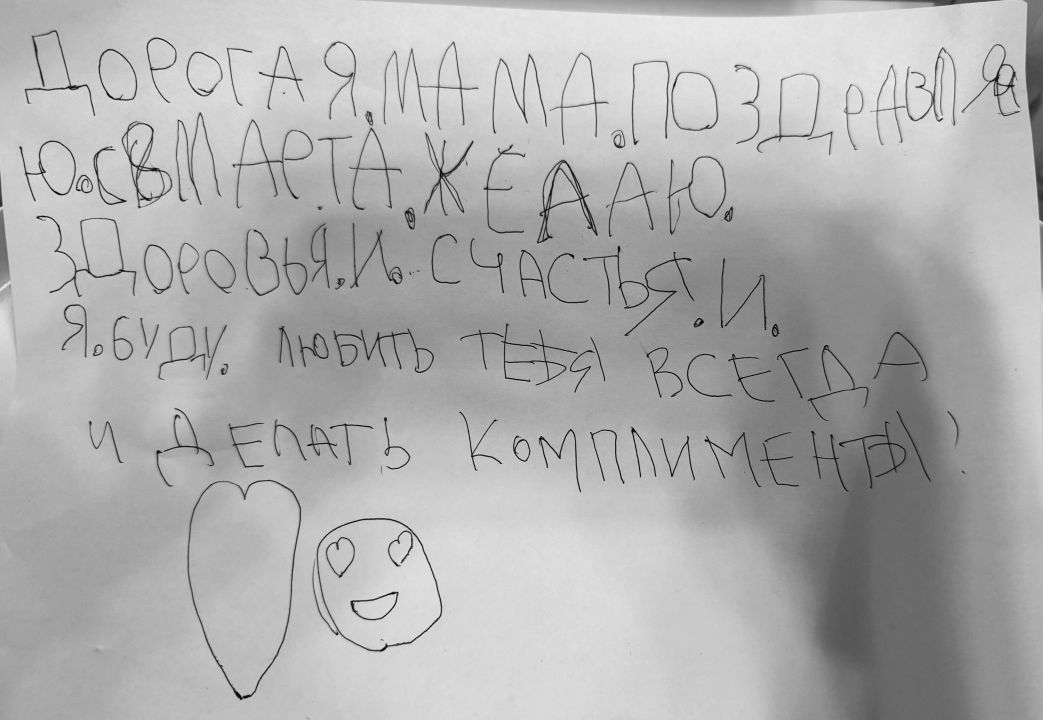 ДОРОГАЯ.МАМА.ПОЗДРАВЛЯ
Ю.С8МАРТА.ЖЕЛАЮ.
ЗДОРОВЬЯ.И.СЧАСТЬЯ.И.
Я.БУДУ. ЛЮБИТЬ ТЕБЯ ВСЕГДА
И ДЕЛАТЬ КОМПЛИМЕНТЫ!